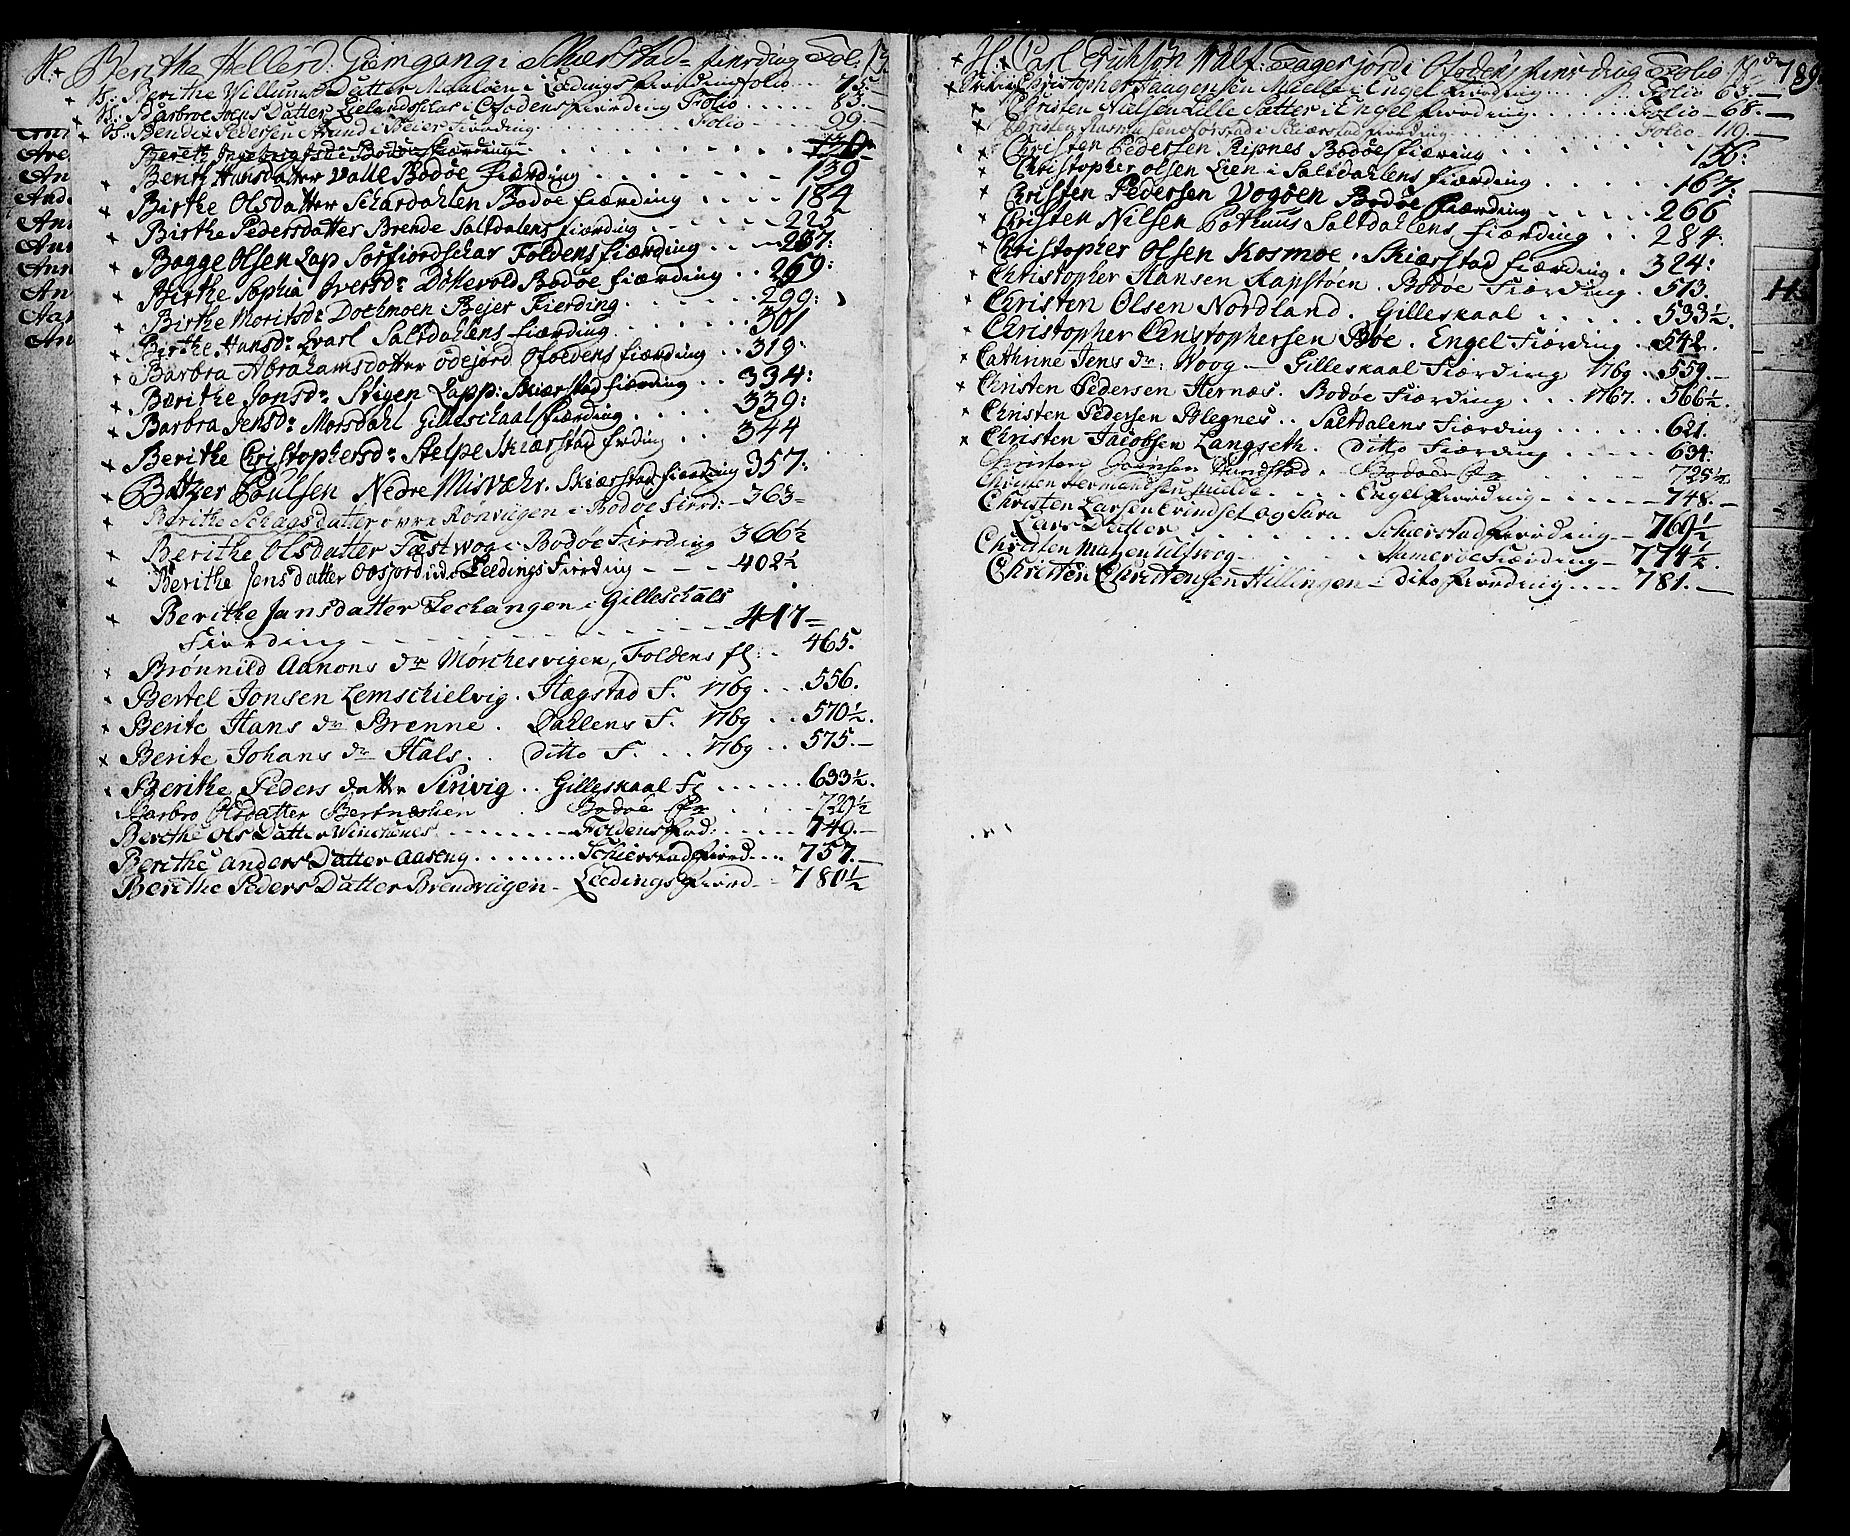 H. Berithe Pellersd. Giemgang i Schierstad fiurding Fol. 13
B. Berithe Willums Datter i Leedings fiording Folio 75.
B. Barbroe Jons Datter i Ofodens fiording Folio 83.
B. Bendix Pedersen Strand i Beier Fiording Folio 99.
Berith Ingebrigtsd: Bodøe fiærding 130
Berit Hansdatter Valle Bodøe fiærding 139
Birthe Olsdatter Schardahlen Bodøe fiærding 184
Birthe Pedersdatter Brende Saltdalens fiærding 225
Bagge Olsen Lap Sørfiordschar Foldens fiærding 257:
Birthe Sophia Iversd: Døhevold Bodøe fiærding 269:
Birthe Moritsd: Dochmoen Bejer Fierding 299:
Berthe Hansd: Evarl Saltdahlens fiærding 301
Barbra Abrahamsdatter Ødejord Ofodens fiærding 319:
Berithe Jonsd: Stigen Lapp: Skiærstad fiærding 334:
Barbra Jensd: Morsdahl Gilleschaal fiærding 339:
Berithe Christophersd: Stelpe Skiærstad fierding 344
Baltzer Poulsen Nedre Misvæhr. Skiærstad fiærding 357:
Berithe Schagsdatter øvre Rønvigen i Bodøe Fierd: 363
Berithe Olsdatter Fæstwog i Bodøe Fierding 366½
Berithe Jensdatter i Leedings Fierding 402½
Berithe Jansdatter Lechangen i Gilleschaals
Fierding 417
Brønnild Aanons dr Mørchesvigen, Foldens f: 465.
Bertel Jonsen Lemschielvig. Hægstad F. 1769 556.
Berite Hans dr Brenne. Dahlens F. 1769 570½.
Berite Johans dr Hals. ditto F. 1769 575.
Berithe Peders datter Sirivig Gilleskaal F 633½.
Barbro Olsdatter Bertneshien Bodøe Fr 729½
Berithe Ols Datter Foldens fierd: 749.
Berithe Anders Datter Aaseng Schierstad fierd 757.
Berithe Peders Datter Brendvigen Leedings fierd 780½
H. Carl Erichsøn Walf. Fagerjord i Ofoden fiurding Folio 789
Christopher Haagensen i Engel fiording Folio 63.
Christen Nielsen Lille Sætter i Engel fiording Folio 68.
Christen Rasmusen i Schiærstad fiording Folio 119.
Christen Pedersen Ripnes Bodøe fiæring 156:
Christopher Olsen Lien i Saltdahlens fiærding 167:
Christen Pedersen Vogøen Bodøe fiærding 266
Christen Nilsen Pothuus Saltdallens fiærding 284:
Christopher Olsen Kosmoe. Skiærstad fiærding 324:
Christopher Hansen Kapstøen. Bodøe Fiærding. 513.
Christen Olsen Nordland. Gilleskaal 533½.
Christopher Christophersen Bøe. Engel Fiærding 542.
Cathrine Jens dr: Woog Gilleskaal Fiærding 1769 559.
Christen Pedersen Hernæs. Bodøe Fiærding 1767. 566½.
Christen Pedersen Alegnes. Saltdalens Fiærding 621.
Christen Jacobsen Langseth. ditto Fiærding 634:
Christen Joensen Bodøe Fr 725½
Christen Hermandsen Mulde Engel fiording 748.
Christen Larsen Evindset og Sara
Lars Datter Schierstad fierding 769½
Christen Matzen Tilswog Hamerøe Fiærding 774½.
Christen Christensen Hillingen i dito fierding 781.